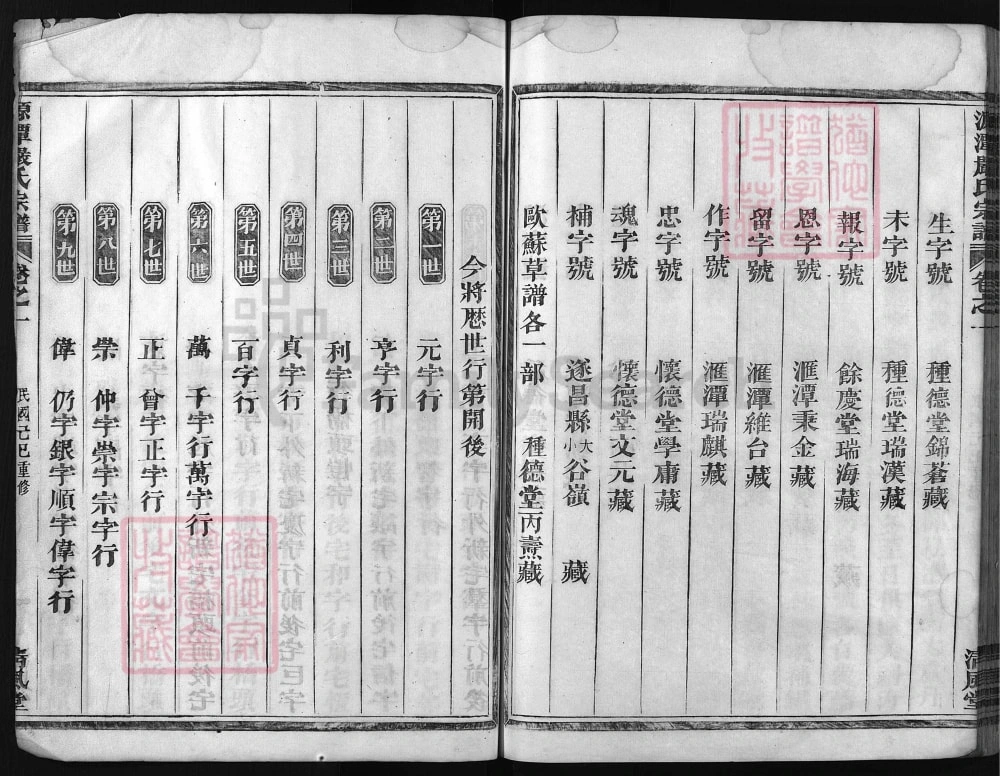 生字號 種德堂錦蒼藏
未字號 種德堂瑞漢藏
報字號 餘慶堂瑞海藏
恩字號 滙潭秉金藏
留字號 滙潭維台藏
作字號 滙潭瑞麒藏
忠字號 懷德堂學庸藏
魂字號 懷德堂文元藏
補字號 遂昌縣大小谷嶺 藏
歐蘇草譜各一部 種德堂丙燾藏
今將歷世行第開後
第一世 元字行
第二世 亨字行
第三世 利字行
第四世 貞字行
第五世 百字行
第六世 萬 千字行萬字行
第七世 正 曾字正字行
第八世 崇 仲字崇字宗字行
第九世 偉 仍字銀字順字偉字行
源潭嚴氏宗譜 卷之一 民國己巳重修 清風堂